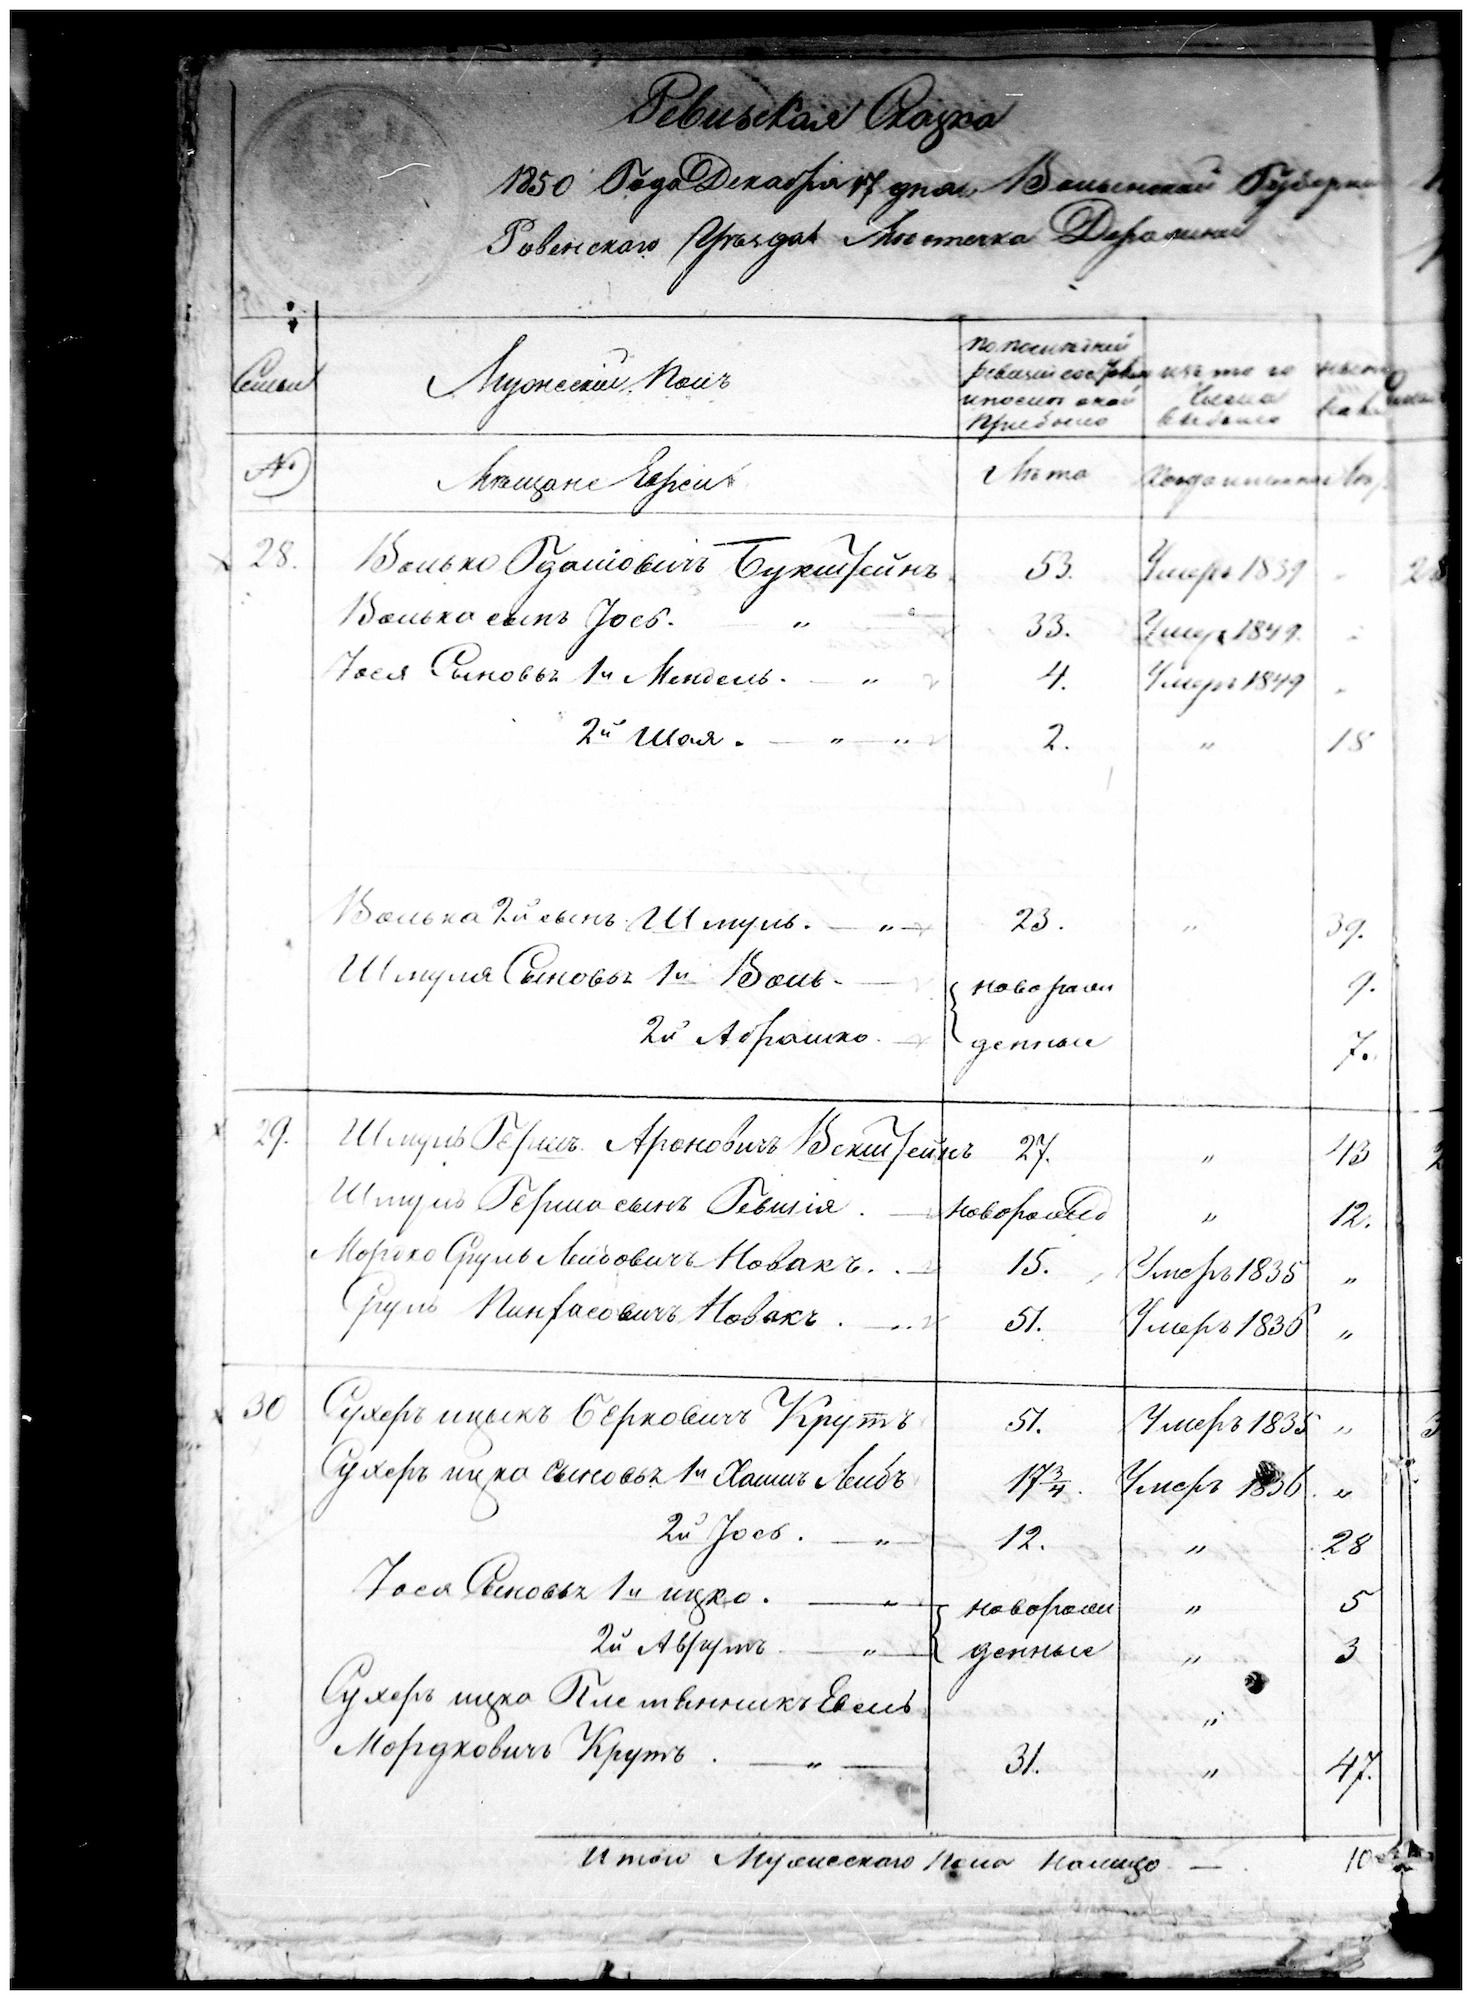 Ревизская Сказка
1850 Года Декабря 17 дня Волынской Губернии
Ровенскаго Уѣзда Местечка Деражни
Семьи
Мужескiй Полъ
по последней ревизiи состояло и после оной прибыло
изъ того числа выбыло
ныне
№
Мѣщане Евреи
Лѣта
Когда именно
28. Волько Гдашовичъ Букштейнъ 53. Умеръ 1839 "
Волька сынъ Іось. " 33. Умеръ 1849. "
Іося Сыновья 1й Мендель. " 4. Умеръ 1849 "
2й Шая. " " 2. " 18
Волька 2й сынъ Шмуль. " 23. " 39.
Шмуля Сыновья 1й Воль. новорож 9.
2й Абрашко. денные 7.
29. Шмуль Гершъ Ароновичъ Векштейнъ 27. " 43
Шмуль Герша сынъ Гевшія. новорожд " 12.
Мошко Сруль Лейбовичъ Новакъ. 15. Умеръ 1835 "
Сруль Пинфасовичъ Новакъ. 51. Умеръ 1836 "
30 Сухеръ ицыкъ Берковичъ Крутъ 51. Умеръ 1835 "
Сухеръ ицка сыновья 1й Хаимъ Лейбъ 17 3/4. Умеръ 1836. "
2й Іось. " 12. " 28
Іося Сыновья 1й ицко. " новорож " 5
2й Аврумъ " денные " 3
Сухеръ ицка Племянникъ Евель "
Мордковичъ Крутъ. " 31. " 47.
Итого Мужескаго пола налицо — 10